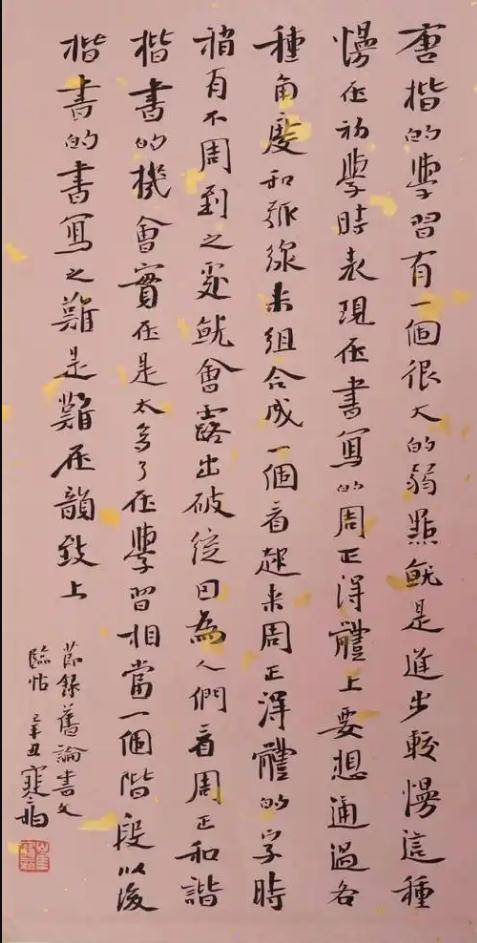 唐楷的學習有一個很大的弱點就是進步較慢這種
慢在初學時表現在書寫的周正得體上要想通過各
種角度和弧線來組合成一個看起來周正得體的字時
稍有不周到之處就會露出破綻因為人們看周正和諧
楷書的機會實在是太多了在學習相當一個階段以後
楷書的書寫之難是難在韻致上
節錄舊論書文
臨帖 辛丑寒